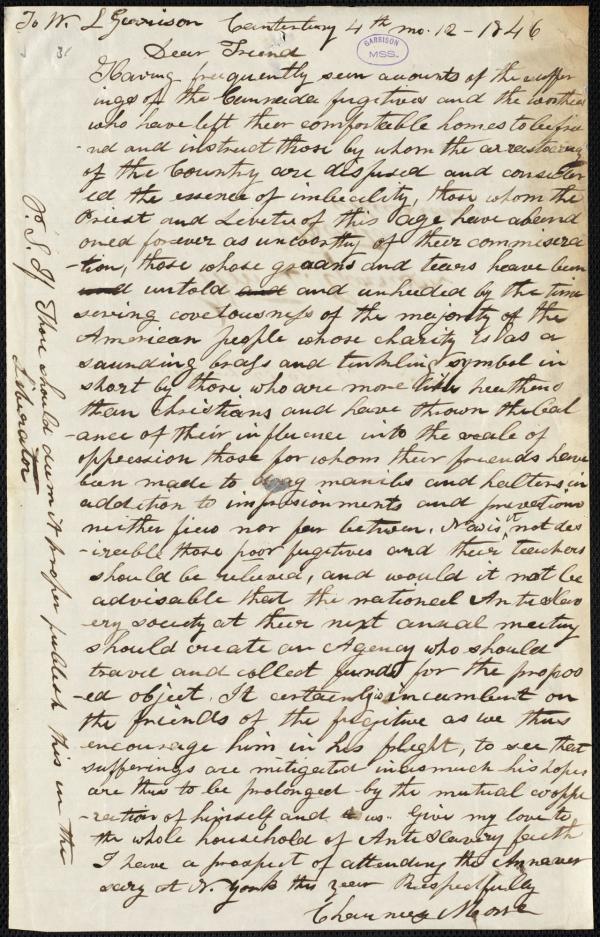 To W. L Garrison Canterbury 4th mo. 12 - 1846
GARRISON
MSS.
Dear Friend
Having frequently seen acounts of the suffer
ings of the Cannada fugitives and the worthies
who have left their comfortable homes to befrie
-nd and instruct those by whom the arrestocracy
of the Country are dispised and consider
ed the essence of imbecility, those whom the
Priest and Levite of this age have aband
oned forever as unworthy of their commisera
-tion, those whose groans and tears heave been
and untold and and unheeded by the time
serving covetousness of the majority of the
American people whose charity is as a
saunding brass and tinkling symbol in
short by those who are more like heathens
than christians and have thrown the bal
-ance of their influence into the scale of
oppression those for whom their friends have
been made to drag manicles and halters in
addition to imprisonments and privations
neither few nor far between. Now is it not des
-ireable those poor fugitives and their teachers
should be relieved, and would it not be
advisable that the national Antislav
ery society at their next anual meeting
should create an Agency who should
travel and collect funds for the propos
-ed object. It certainly is incumbent on
the friends of the fugitive as we thus
encourage him in his flight, to see that
sufferings are mitigated inasmuch his hopes
are thus to be prolonged by the mutual coope
-ration of himself and us. Give my love to
the whole household of Antislavery faith
I have a prospect of attending the Anniver
sary at N. York this year Respectfully
Chauncey Moore
P. S. If Thou should deem it proper publish this in the
Liberator